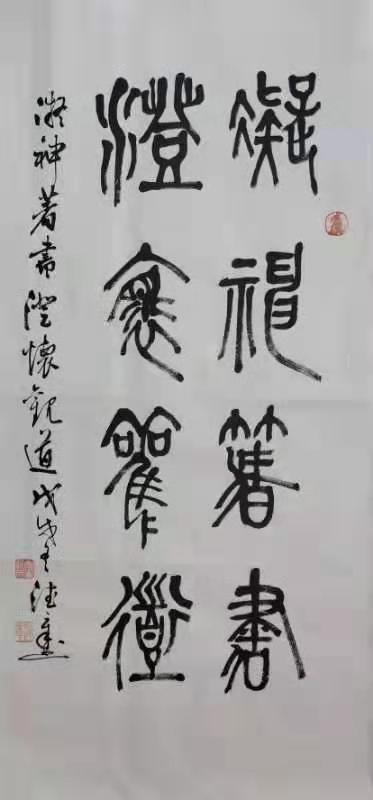 凝神著書
澄懷觀道
凝神著書澄懷觀道戊戌冬德